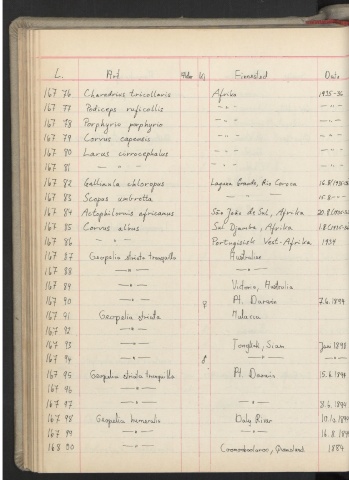 L. Art Kjønn Finnested Dato
167 76 Charadrius tricollaris Afrika 1935-36
167 77 Podiceps ruficollis — " — — " —
167 78 Porphyrio porphyrio — " — — " —
167 79 Corvus capensis — " — — " —
167 80 Larus cirrocephalus — " — — " —
167 81 — " — — " — — " —
167 82 Gallinula chloropus Lagoa, Rio Coroca
167 83 Scopus umbretta — " — — " —
167 84 Actophilornis africanus São João do Sul, Afrika
167 85 Corvus albus Sul Djamba, Afrika
167 86 — " — Portugisisk Vest-Afrika 1934
167 87 Geopelia striata tranquilla Australien
167 88 — " — — " —
167 89 — " — Victoria, Australia
167 90 — " — ♀ Pt. Darwin 7.6.1894
167 91 Geopelia striata Malacca
167 92 — " —
167 93 — " — Tongkah, Siam Jan 1898
167 94 — " — ♂ — " — — " —
167 95 Geopelia striata tranquilla Pt. Darwin 15.6.1894
167 96 — " —
167 97 — " — — " — 8.6.1894
167 98 Geopelia humeralis Daly River 10.10.1894
167 99 — " — — " — 16.8.1894
168 00 — " — Coomooboolaroo, Queensland 1884